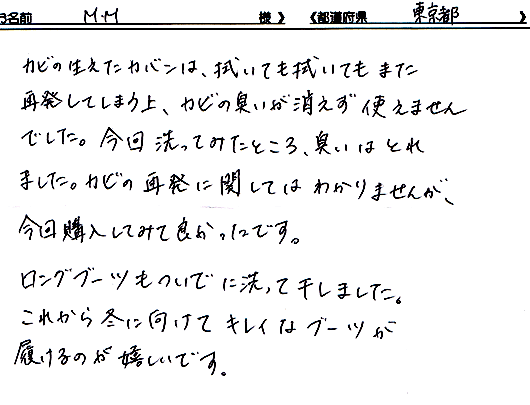 お名前 M.M 様 》 《都道府県 東京都 》
カビの生えたカバンは、拭いても拭いてもまた
再発してしまう上、カビの臭いが消えず使えません
でした。今回洗ってみたところ、臭いはとれ
ました。カビの再発に関してはわかりませんが、
今回購入してみて良かったです。
ロングブーツもついでに洗って干しました。
これから冬に向けてキレイなブーツが
履けるのが嬉しいです。